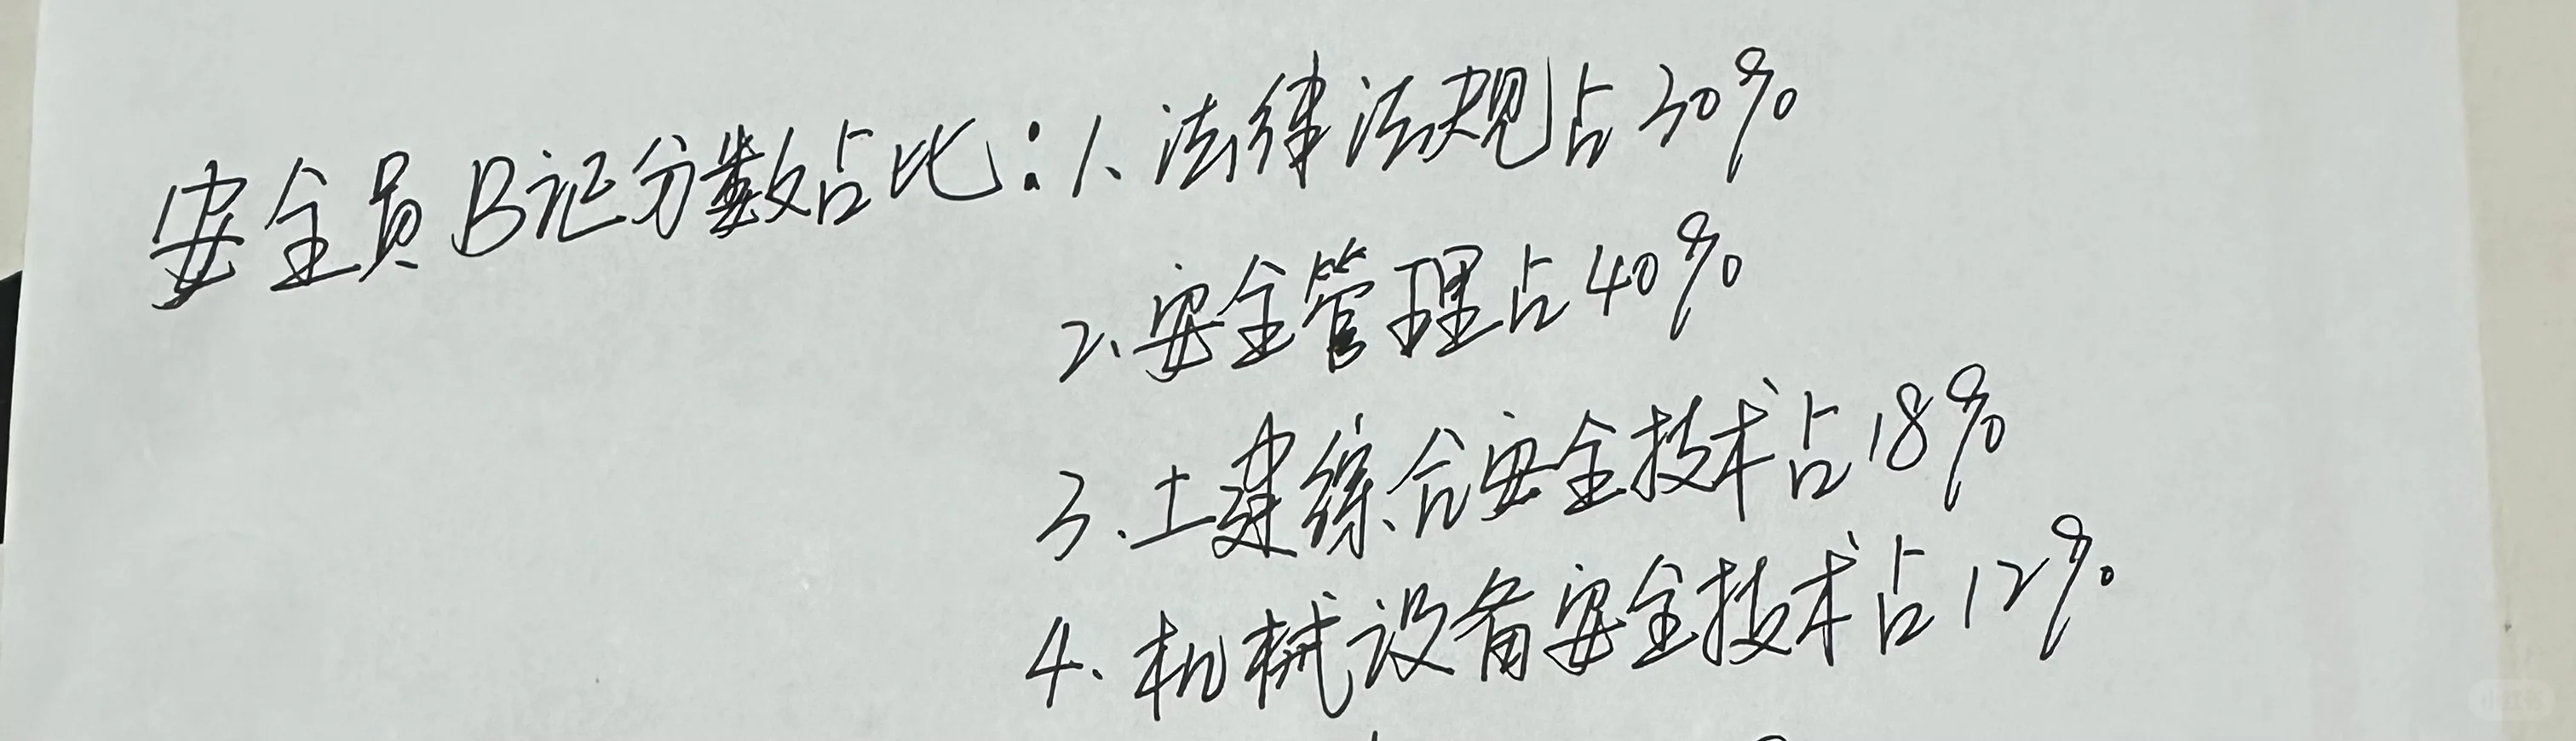 安全员B证分数占比：1、法律法规占30%
2、安全管理占40%
3、土建综合安全技术占18%
4、机械设备安全技术占12%